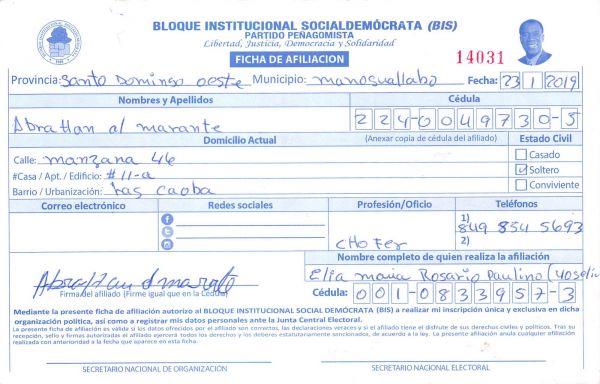 BLOQUE INSTITUCIONAL SOCIALDEMÓCRATA (BIS)
PARTIDO PEÑAGOMISTA
Libertad, Justicia, Democracia y Solidaridad
FICHA DE AFILIACION
14031
Provincia: Santo Domingo oeste Municipio: manoguallabo Fecha: 23 1 2019
Nombres y Apellidos Cédula
Abrathan al marante 224-0049730-5
Domicilio Actual (Anexar copia de cédula del afiliado) Estado Civil
Calle: manzana 46 Casado
#Casa / Apt. / Edificio: #11-a Soltero
Barrio / Urbanización: las caoba Conviviente
Correo electrónico Redes sociales Profesión/Oficio Teléfonos
1) 849 854 5693
CHOFer 2)
Nombre completo de quien realiza la afiliación
Elia maria Rosario Paulino
Firma del afiliado (Firme igual que en la Cédula) Cédula: 001-0833957-3
Mediante la presente ficha de afiliación autorizo al BLOQUE INSTITUCIONAL SOCIAL DEMÓCRATA (BIS) a realizar mi inscripción única y exclusiva en dicha
organización política, así como a registrar mis datos personales ante la Junta Central Electoral.
La presente ficha de afiliación es válida si los datos ofrecidos por el afiliado son correctos, las declaraciones veraces y si el afiliado tiene el disfrute de sus derechos civiles y políticos. Tras su
recepción, sello y firmas autorizadas el afiliado ejercerá todos los derechos y los deberes estatutariamente sancionados, de acuerdo a la ley. La presente afiliación anula cualquier afiliación
realizada con anterioridad a la fecha que aparece en esta ficha.
SECRETARIO NACIONAL DE ORGANIZACIÓN SECRETARIO NACIONAL ELECTORAL